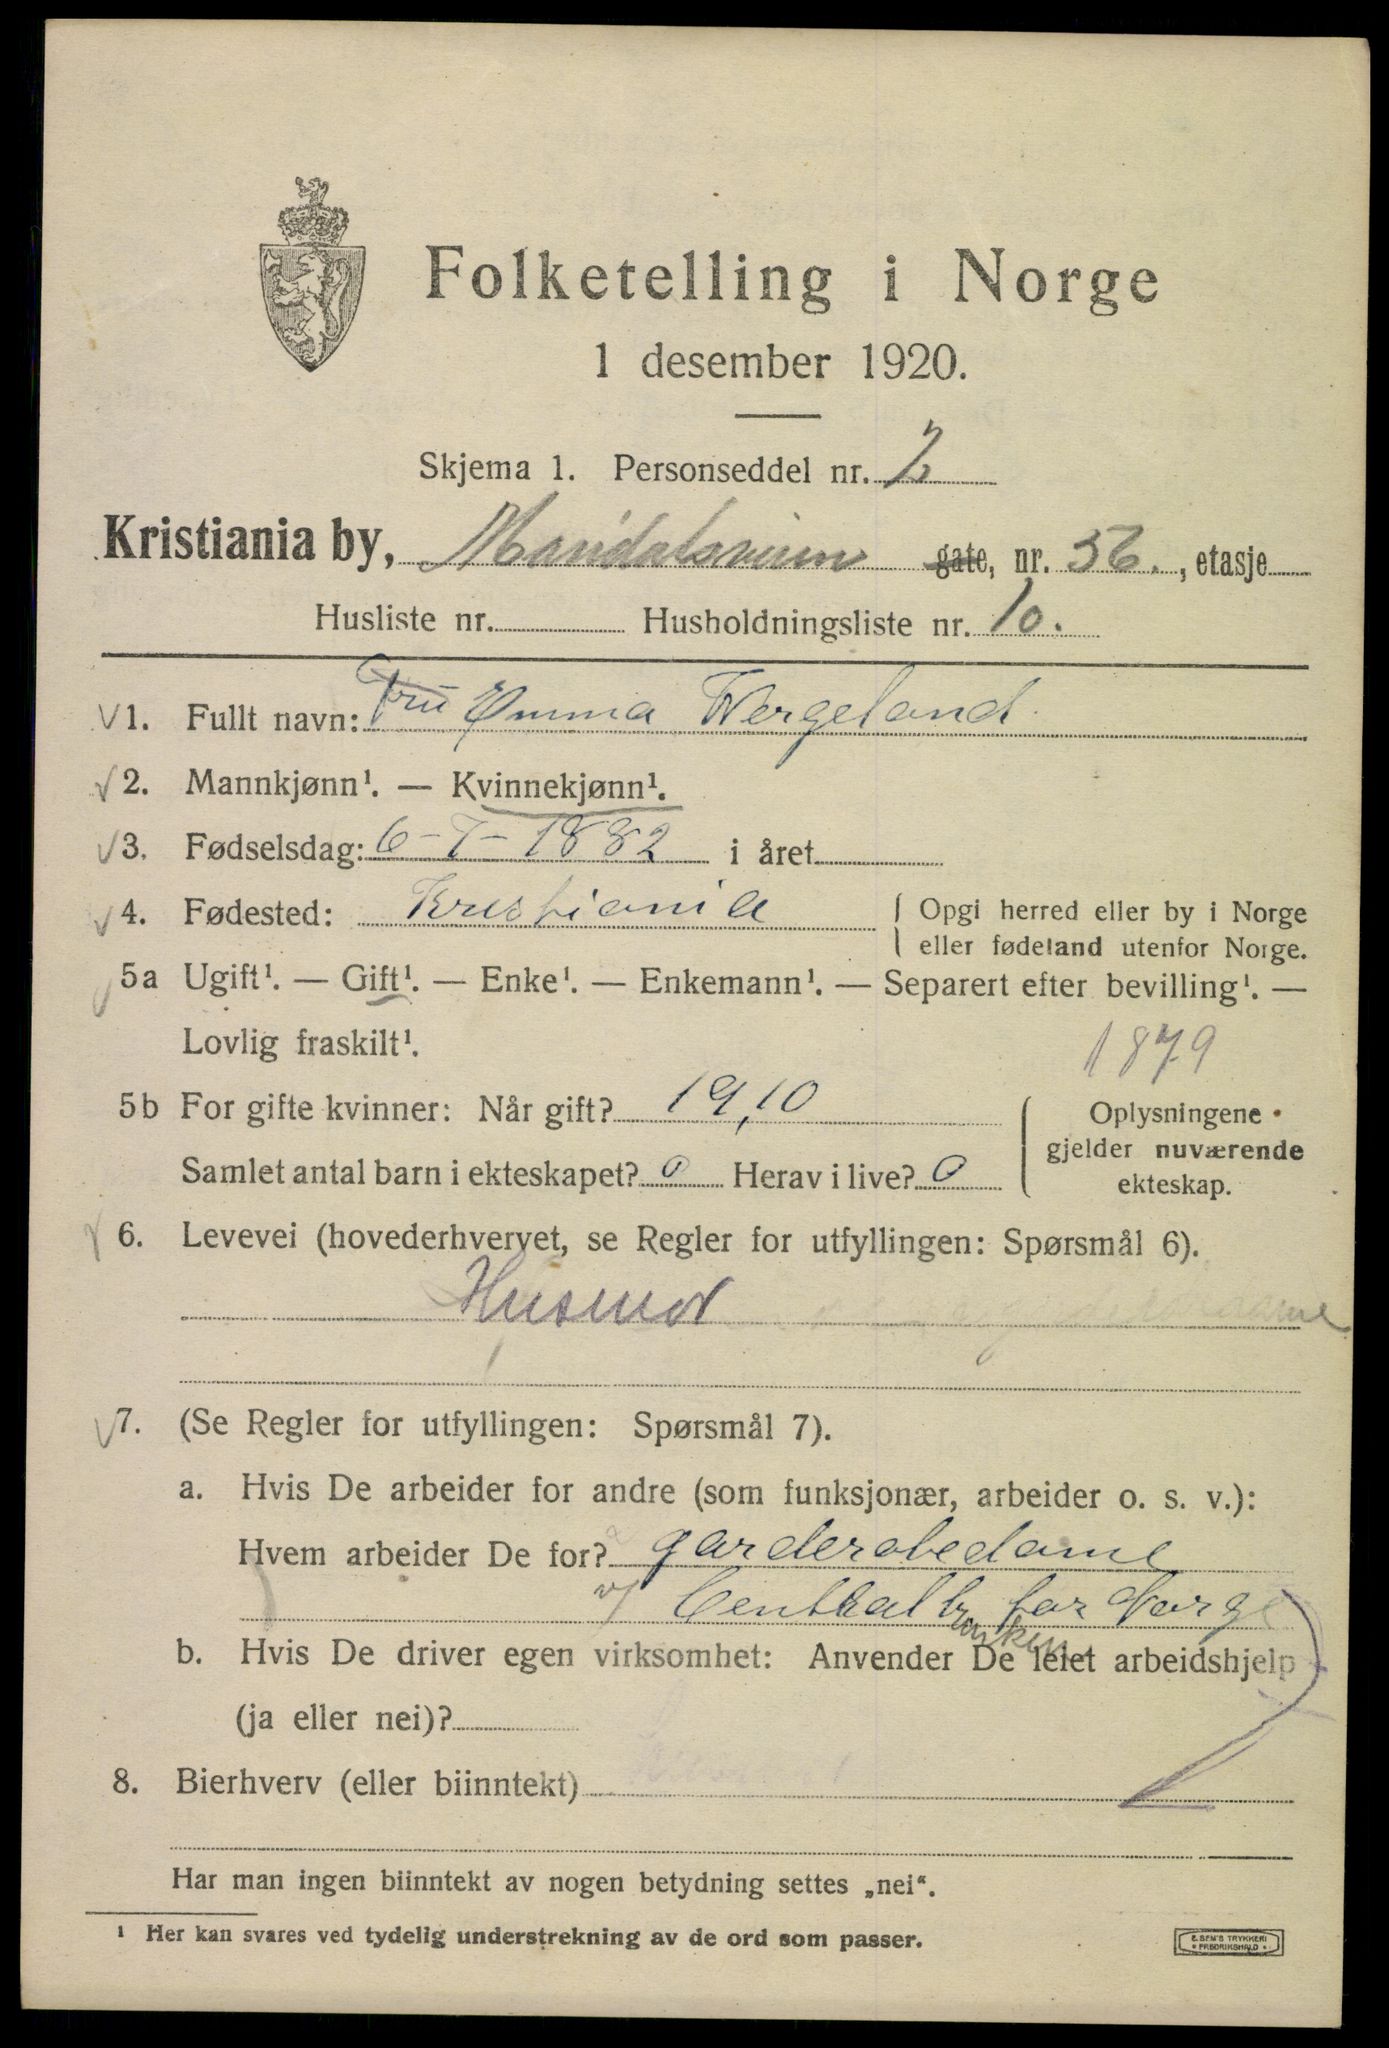 Folketelling i Norge
1 desember 1920.
Skjema 1. Personseddel nr. 2
Kristiania by, Maridalsveien gate, nr. 56., etasje
Husliste nr. Husholdningsliste nr. 10.
1. Fullt navn: Fru Emma Wergeland.
2. Mannkjønn¹. — Kvinnekjønn¹.
3. Fødselsdag: 6-7-1882 i året
4. Fødested: Kristiania { Opgi herred eller by i Norge
eller fødeland utenfor Norge.
5a Ugift¹. — Gift¹. — Enke¹. — Enkemann¹. — Separert efter bevilling¹. —
Lovlig fraskilt¹.
1879
5b For gifte kvinner: Når gift? 19,10
Samlet antal barn i ekteskapet? 0 Herav i live? 0
{ Oplysningene
gjelder nuværende
ekteskap.
6. Levevei (hovederhvervet, se Regler for utfyllingen: Spørsmål 6).
Husmor
7. (Se Regler for utfyllingen: Spørsmål 7).
a. Hvis De arbeider for andre (som funksjonær, arbeider o. s. v.):
Hvem arbeider De for? garderobedame
v/ Centralbanken for Norge
b. Hvis De driver egen virksomhet: Anvender De leiet arbeidshjelp
(ja eller nei)?
8. Bierhverv (eller biinntekt)
Har man ingen biinntekt av nogen betydning settes „nei“.
¹ Her kan svares ved tydelig understrekning av de ord som passer.
E. SEM'S TRYKKERI
* FREDRIKSHALD *